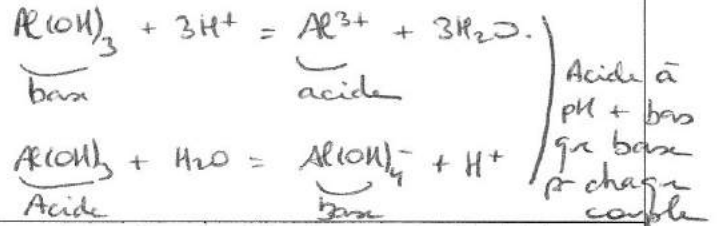 Al(OH)₃ + 3H⁺ = Al³⁺ + 3H₂O.
base acide
Al(OH)₃ + H₂O = Al(OH)₄⁻ + H⁺
Acide Base
Acide à
pH + bas
qe base
pr chaqe
couple